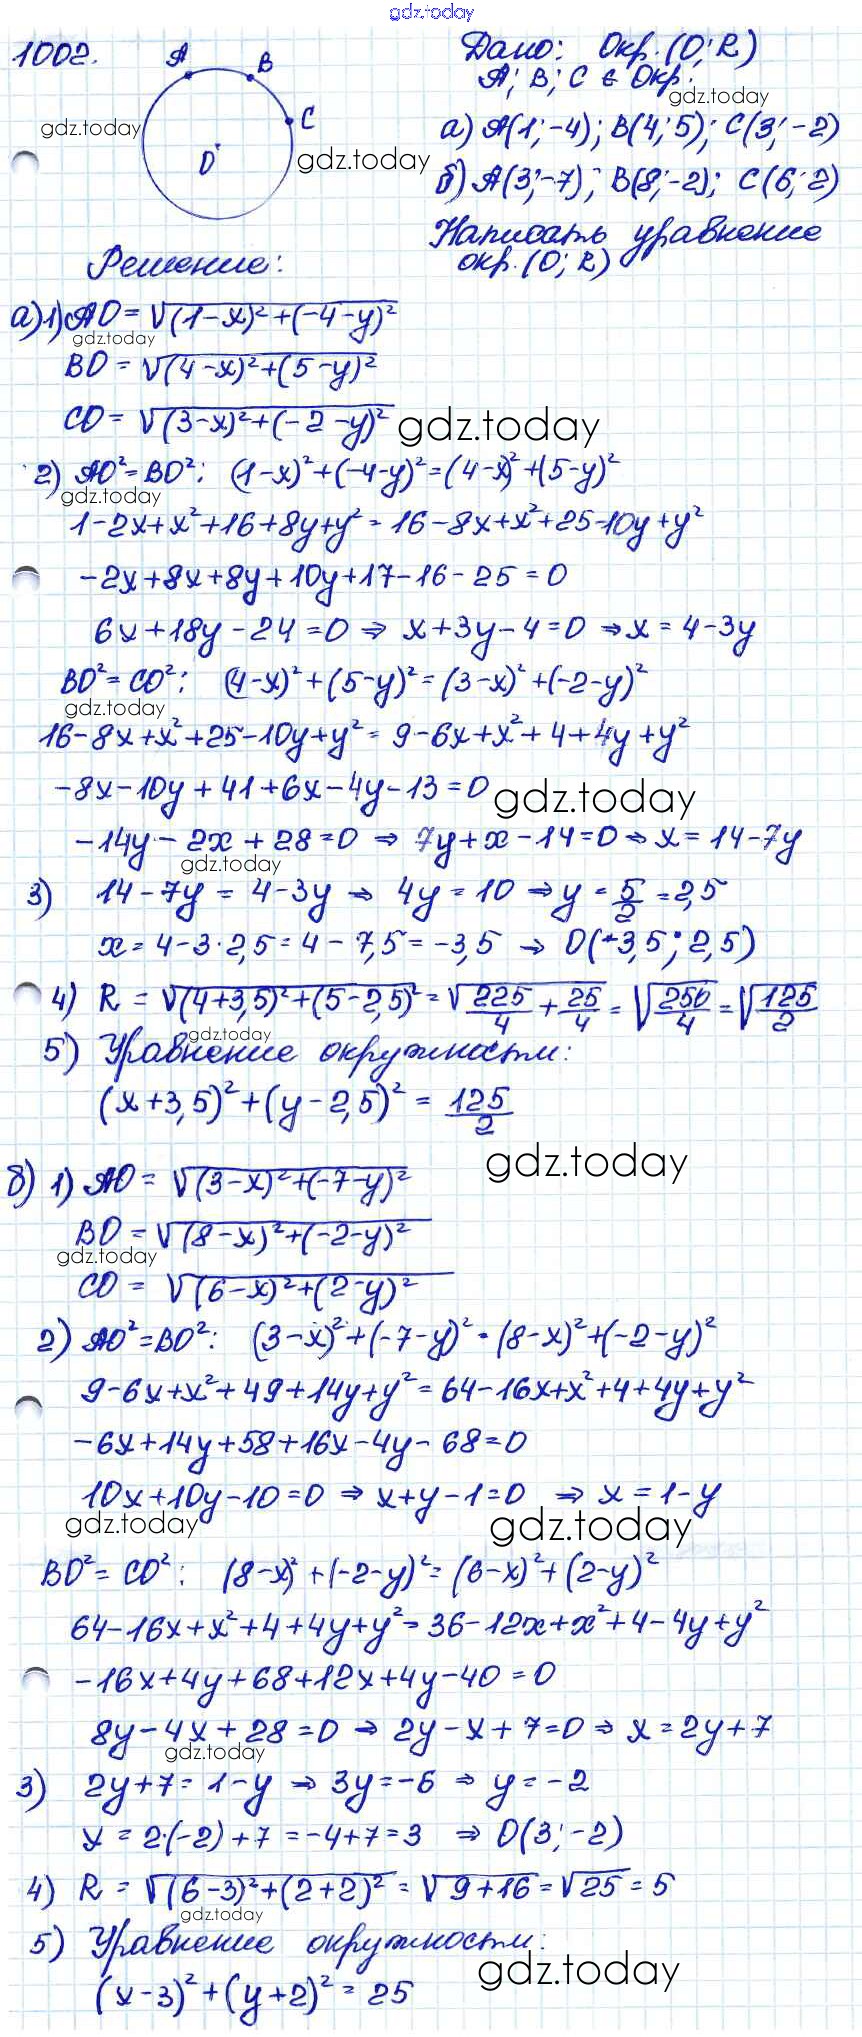 gdz.today
1002.
A
B
C
O
Дано: Окр. (O; R)
A; B; C ∈ Окр.
gdz.today
gdz.today
gdz.today
а) A(1; -4); B(4; 5); C(3; -2)
б) A(3; -7); B(8; -2); C(6; 2)
Написать уравнение
окр. (O; R)
Решение:
а) 1) AO = √(1-x)²+(-4-y)²
gdz.today
BO = √(4-x)²+(5-y)²
CO = √(3-x)²+(-2-y)²
gdz.today
2) AO²=BO²: (1-x)²+(-4-y)²=(4-x)²+(5-y)²
gdz.today
1-2x+x²+16+8y+y²=16-8x+x²+25-10y+y²
-2x+8x+8y+10y+17-16-25=0
6x+18y-24=0 ⇒ x+3y-4=0 ⇒ x=4-3y
BO²=CO²: (4-x)²+(5-y)²=(3-x)²+(-2-y)²
gdz.today
16-8x+x²+25-10y+y²=9-6x+x²+4+4y+y²
-8x-10y+41+6x-4y-13=0
gdz.today
-14y-2x+28=0 ⇒ 7y+x-14=0 ⇒ x=14-7y
gdz.today
3) 14-7y=4-3y ⇒ 4y=10 ⇒ y=5/2=2,5
x=4-3·2,5=4-7,5=-3,5 ⇒ O(-3,5; 2,5)
4) R=√(4+3,5)²+(5-2,5)²=√225/4+25/4=√250/4=√125/2
gdz.today
5) Уравнение окружности:
(x+3,5)²+(y-2,5)²=125/2
gdz.today
б) 1) AO=√(3-x)²+(-7-y)²
BO=√(8-x)²+(-2-y)²
gdz.today
CO=√(6-x)²+(2-y)²
2) AO²=BO²: (3-x)²+(-7-y)²=(8-x)²+(-2-y)²
9-6x+x²+49+14y+y²=64-16x+x²+4+4y+y²
-6x+14y+58+16x-4y-68=0
10x+10y-10=0 ⇒ x+y-1=0 ⇒ x=1-y
gdz.today
gdz.today
BO²=CO²: (8-x)²+(-2-y)²=(6-x)²+(2-y)²
64-16x+x²+4+4y+y²=36-12x+x²+4-4y+y²
-16x+4y+68+12x+4y-40=0
8y-4x+28=0 ⇒ 2y-x+7=0 ⇒ x=2y+7
gdz.today
3) 2y+7=1-y ⇒ 3y=-6 ⇒ y=-2
x=2·(-2)+7=-4+7=3 ⇒ O(3; -2)
4) R=√(6-3)²+(2+2)²=√9+16=√25=5
gdz.today
5) Уравнение окружности:
gdz.today
(x-3)²+(y+2)²=25